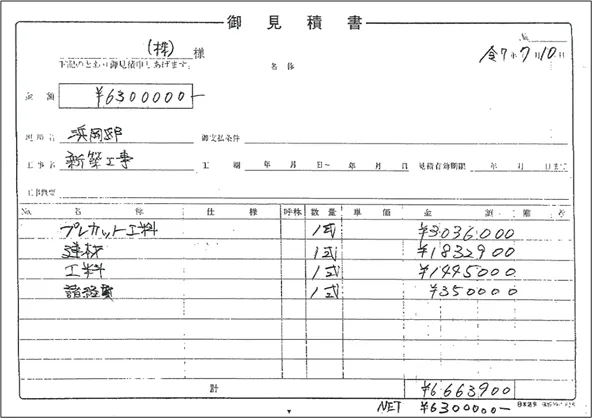 御見積書
No.
令7年7月10日
(株) 様
下記のとおり御見積申しあげます。
名称
金額 ¥6300000-
現場名 浜岡邸 御支払条件
工事名 新築工事 工期 年 月 日～ 年 月 日 見積有効期限 年 月 日まで
工事概要
No. 名称 仕様 呼称 数量 単価 金額 備考
プレカット工料 1式 ¥3036000
建材 1式 ¥1832900
工料 1式 ¥1445000
諸経費 1式 ¥350000
計 ¥6663900
NET ¥6300000-
日本法令